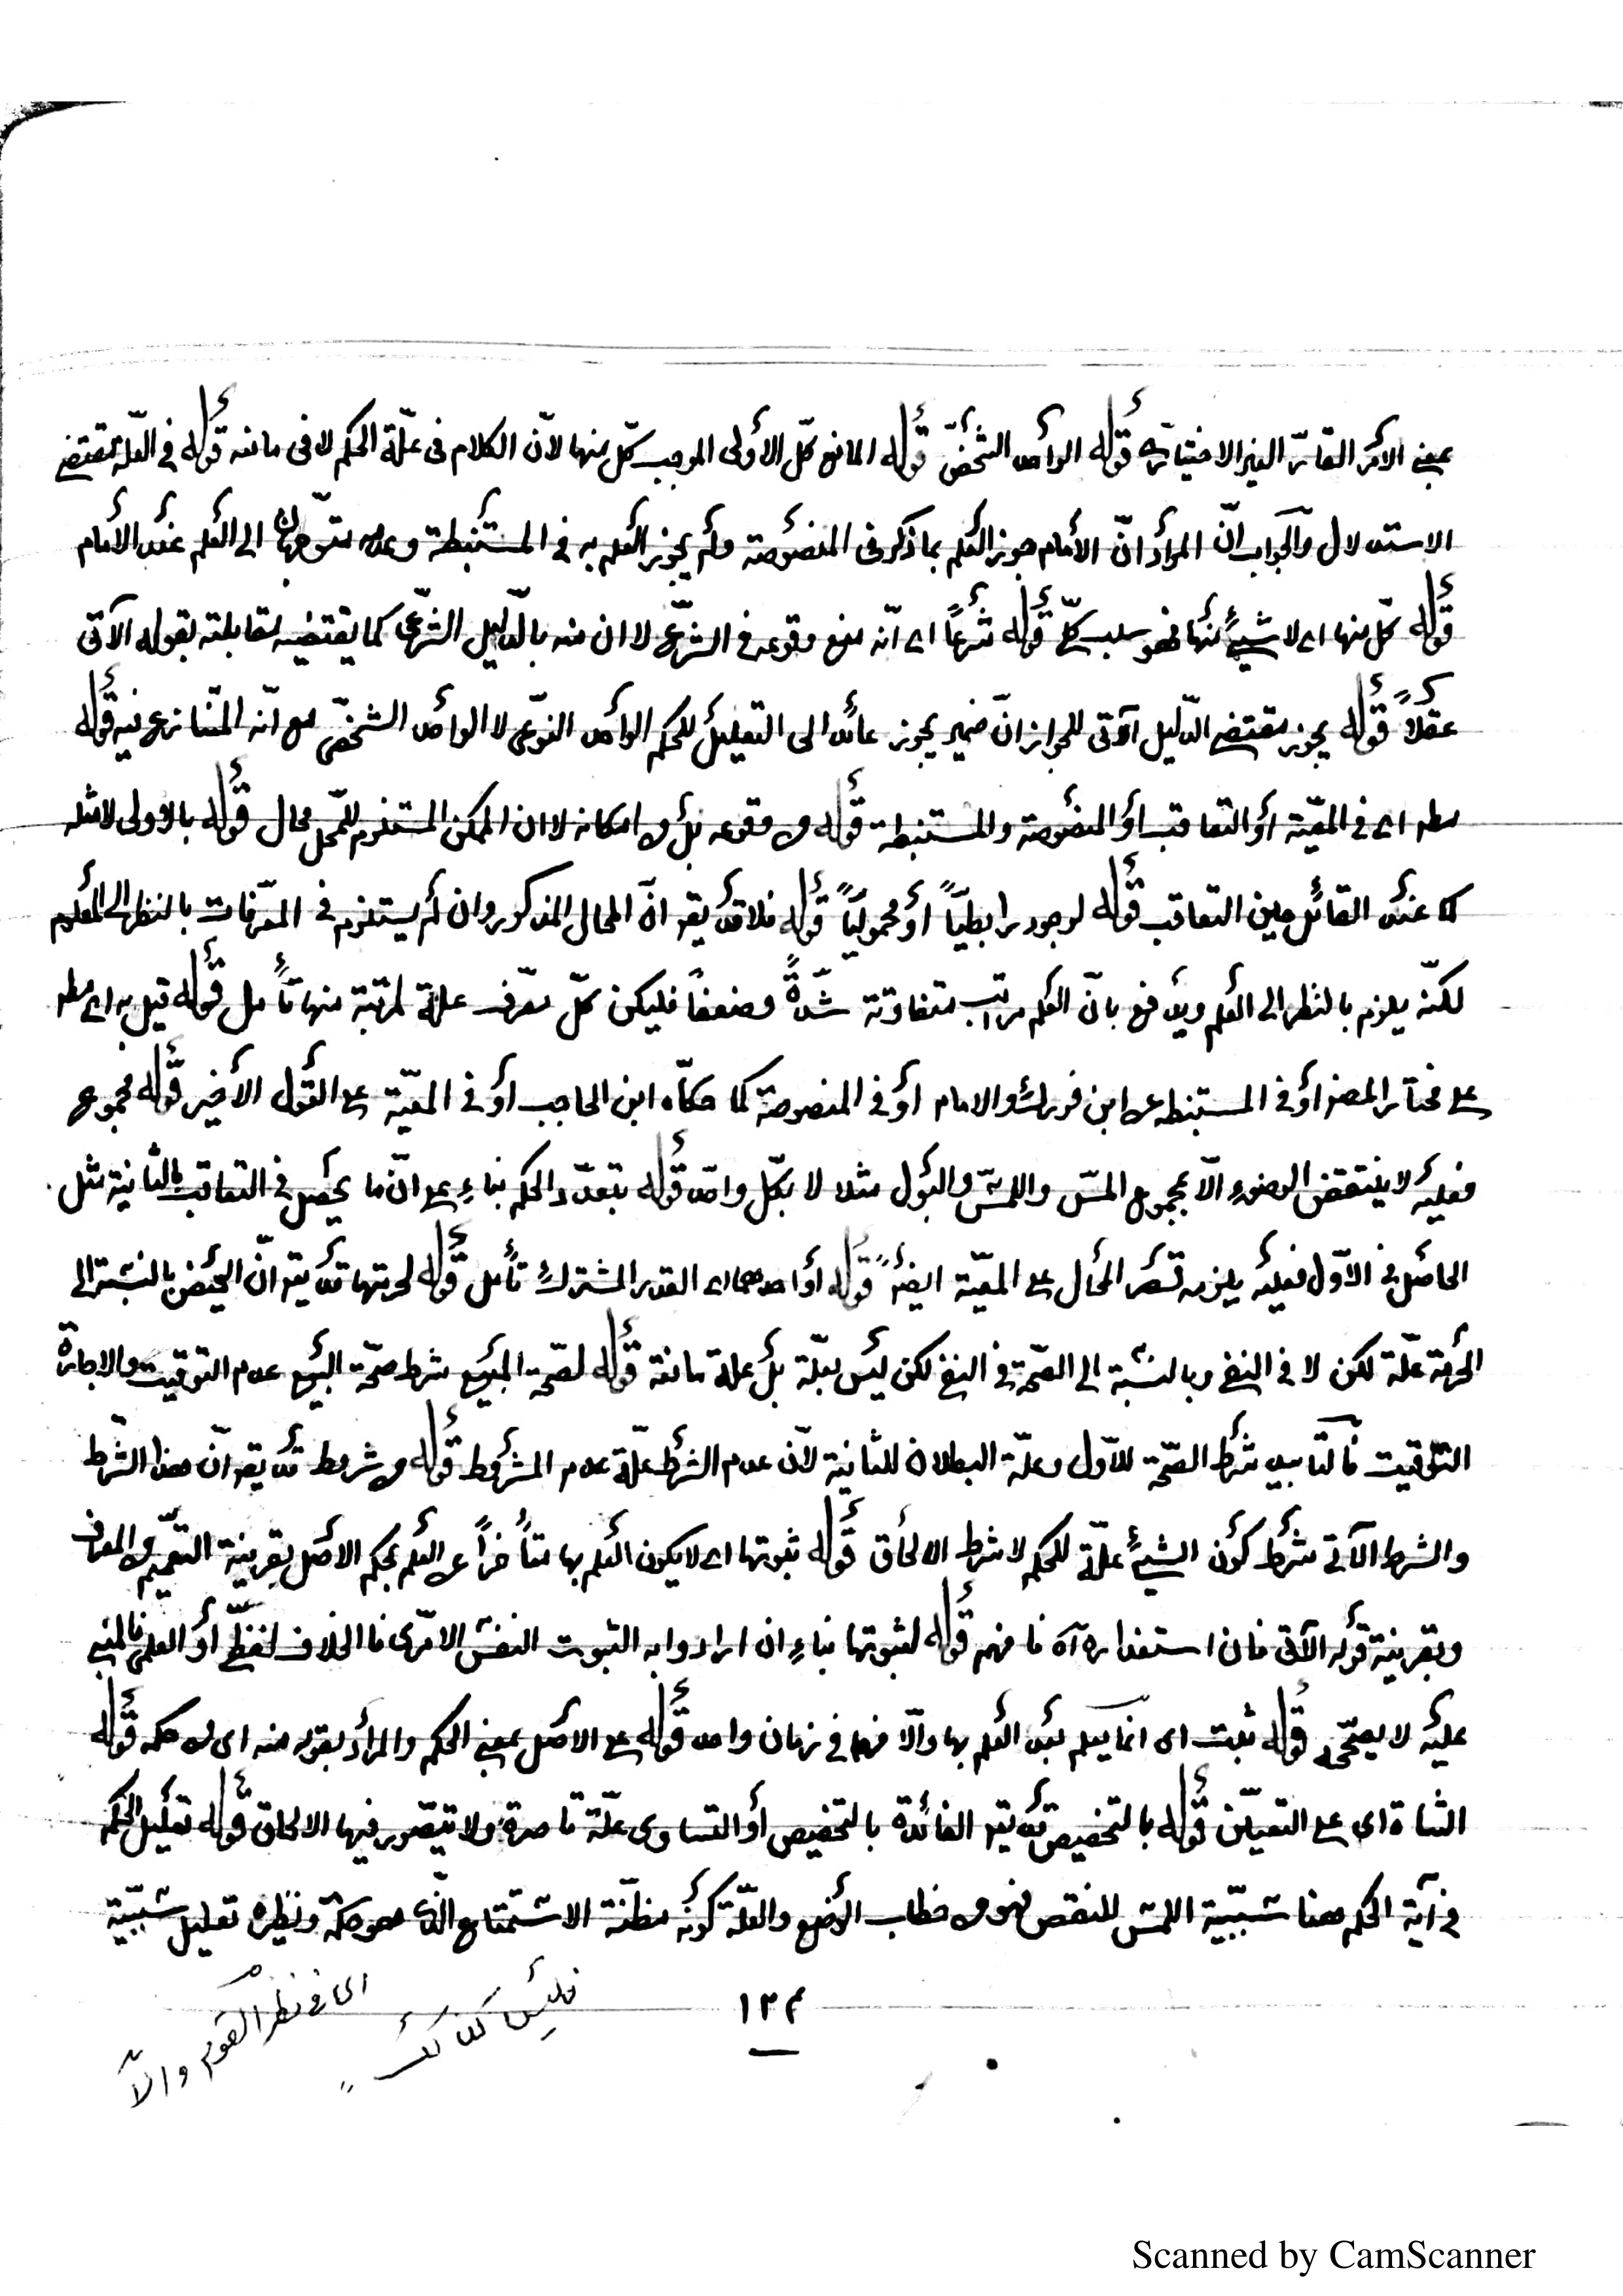 بمعنى الأمر القارّ الغير الاختياريّ قوله الواحد الشخصيّ قوله المانع كلّ الأولى الموجب كلّ منها لأنّ الكلام في علّة الحكم لا في مانعه قوله في العلّة مقتضى
الاستدلال والجواب انّ المراد انّ الأمام جوز العلم بما ذكر في المنصوصة ولم يجوز العلم به في المستنبطة وعدم الى العلم عند الأمام
قوله كلّ منها اى لا شيئ منها فهو سلب كلّيّ قوله شرعاً اى انّه منع وقوعه في الشرع لا ان منه بالدّليل الشّرعيّ كما يقتضيه مقابلته بقوله الآتى
عقلاً قوله يجوز مقتضى الدّليل الآتى للجواز انّ ضمير يجوز عائد الى التعليل للحكم الواحد النوعى لا الواحد الشخصيّ مع انّه المتنازع فيه قوله
مطم اى في المعيّة أو التعاقب أو المنصوصة والمستنبطة قوله من وقوعه بل من امكانه لا ان الممكن المستلزم للمحل محال قوله بالاولى لا مثله
كما عند القائل حين التعاقب قوله لوجود رابطيّاً أو محموليّاً قوله فلا قد يقر انّ المحال المذكور وان لم يستلزم في المعرّفات بالنظر الى المعلوم
لكنّه يلزم بالنظر الى العلم ويدفع بانّ العلم مراتب متفاوتة شدّةً وضعفاً فليكن كلّ معرّف علامة لمرتبة منها تأمل قوله قيل به اى مطم
على مختار المصنف أو في المستنبطه عن ابن فورك والامام أو في المنصوصة كما حكاه ابن الحاجب أو في المعيّة على القول الأخير قوله مجموع
فعليه لا ينتقض الوضوء الّا بمجموع المسّ واللمس والبول مثلا لا بكلّ واحد قوله بتعدّد الحكم بناءِ على انّ ما يحصل في التعاقب بالثانية مثل
الحاصل في الأوّل فعليه يلزمه قصر المحال على المعيّة ايضاً قوله أو احدهما اى القدر المشترك تأمل قوله لحرمتها قد يقر انّ الحيض بالنسبة الى
الحرمة علّة لكن لا في النفى وبالنسبة الى الصّحة في النفى لكن ليس بعلّة بل علامة مانعة قوله لصّحة المبيع شرط صحّة البيع عدم التوقيت والاجارة
التّوقيت فالتأبيد شرط الصّحة للأوّل وعلّة البطلان للثانية لأنّ عدم الشرط علّة عدم المشروط قوله من شروط قد يقر انّ هذا الشرط
والشرط الآتى شرط كون الشيئ علّة للحكم لا شرط الالحاق قوله ثبوتها اى لا يكون العلم بها متأخراً عن العلم بحكم الاصل بقرينة التعميم في المعرف
وبقرينة قوله الآتى فان استقذاره آه فافهم قوله لثبوتها بناءِ ان ارادوا به الثبوت النفس الامرّى فالخلاف لفظيّ أو العلم فالمبنى
عليه لا يصحّ قوله ثبت اى انما يعلم بعد العلم بها والّا فهما في زمان واحد قوله على الاصل بمعنى الحكم والمراد بقوله منه اى من حكمه قوله
الشاة اى على التعيّن قوله بالتخصيص قد يقر الفائدة بالتخصيص أو التساوى علّة قاصرة ولا يتصّور فيها الالحاق قوله تعليل الحكم
في آية الحكم هنا سببيّة اللمس للنقض فهو من خطاب الوضع والعلّة كونه مظنّة الاستمتاع الذّى هو حكمة ونظيره تعليل سببيّة
اى في نظر القوم والّا
فليس كذلك
١٣٣
Scanned by CamScanner